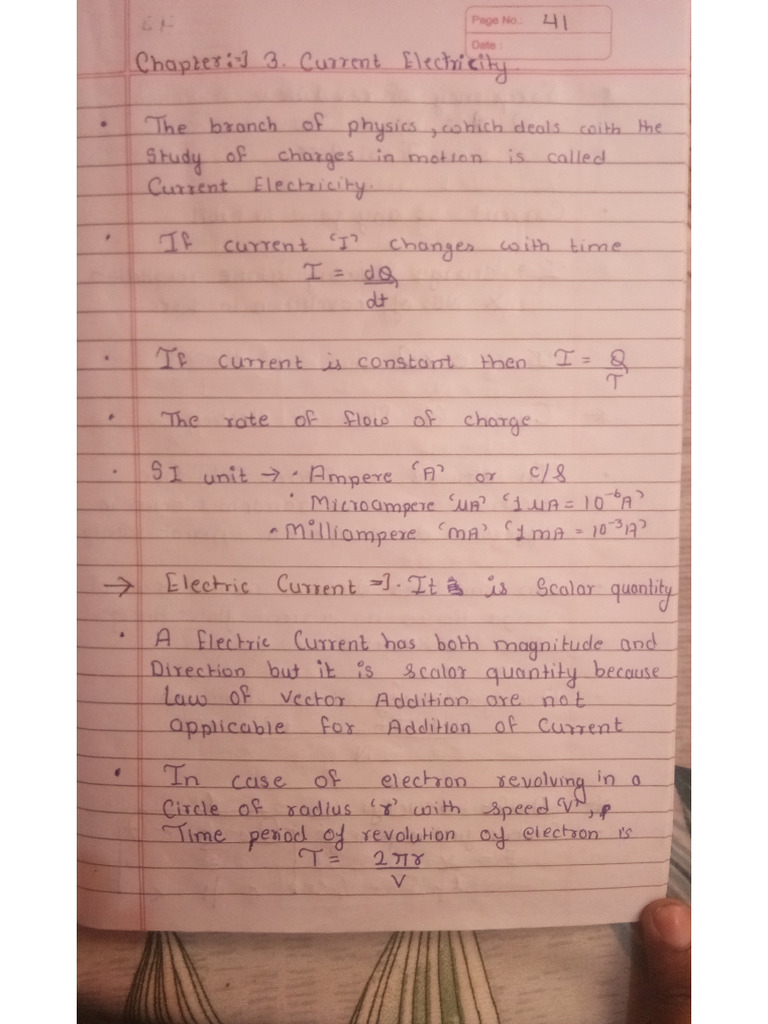 Page No. 41
Date :
Chapter:-] 3. Current Electricity.
• The branch of physics, which deals with the
Study of charges in motion is called
Current Electricity.
• If current 'I' changes with time
I = dQ
dt
• If current is constant then I = Q
T
• The rate of flow of charge
• SI unit → • Ampere 'A' or C/S
• Microampere 'μA' '1 μA = 10⁻⁶A'
• Milliampere 'mA' '1 mA = 10⁻³A'
→ Electric Current =]. It is Scalar quantity
• A Electric Current has both magnitude and
Direction but it is scalar quantity because
Law of Vector Addition are not
applicable for Addition of Current
• In case of electron revolving in a
Circle of radius 'r' with speed 'V',
Time period of revolution of electron is
T = 2πr
V